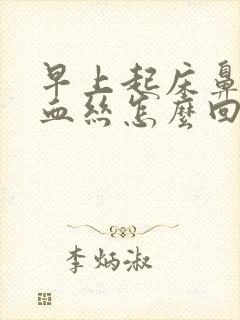 早上起床鼻
血丝怎麽回
李炳淑